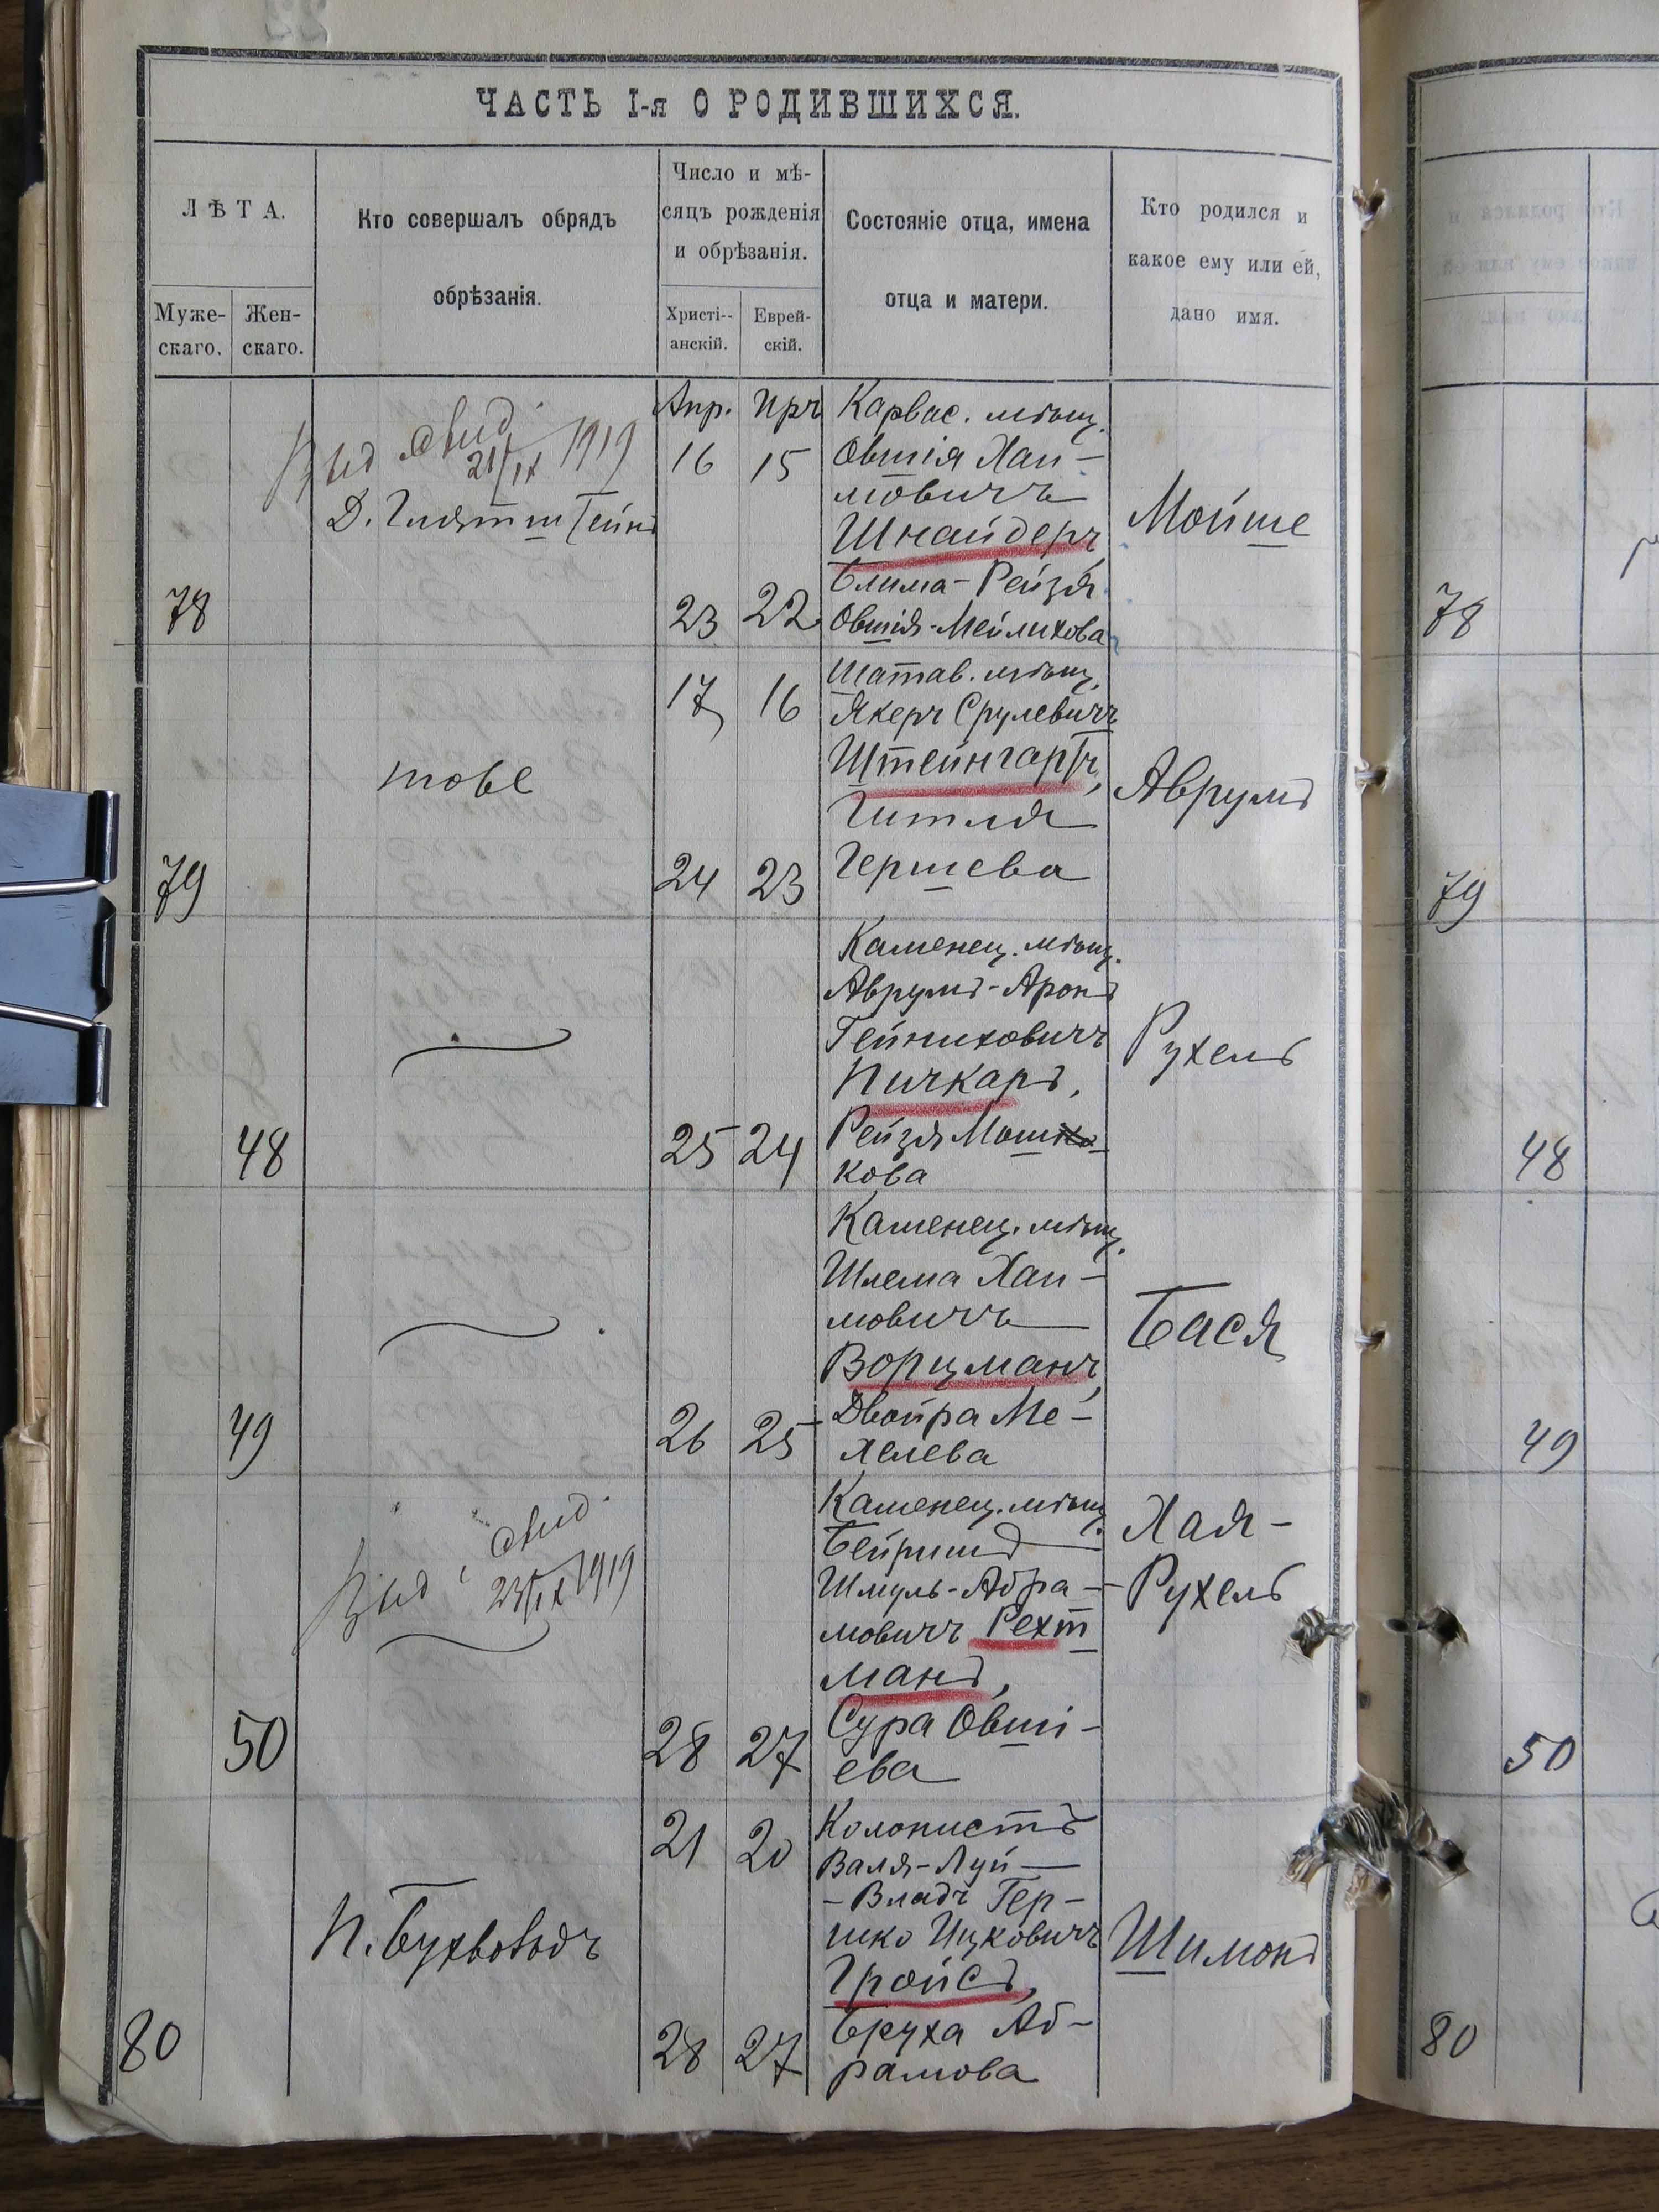 ЧАСТЬ I-я О РОДИВШИХСЯ.
ЛѢТА.
Муже-
скаго.
Жен-
скаго.
Кто совершалъ обрядъ
обрѣзанія.
Число и мѣ-
сяцъ рожденія
и обрѣзанія.
Христі--
анскій.
Еврей-
скій.
Состояніе отца, имена
отца и матери.
Кто родился и
какое ему или ей,
дано имя.
78
21/IX 1919
Апр.
16
23
15
22
Карвас. мѣщ.
Овшія Хаи-
мовичъ
Шнайдеръ,
Блима-Рейзя
Овшія-Мейлихова
Мойше
78
79
тоже
17
24
16
23
Шатав. мѣщ.
Срулевичъ
Штейнгартъ,
Гитля
Гершева
Аврумъ
79
48
25
24
Каменец. мѣщ.
Аврумъ-Аронъ
Гейниховичъ
Пичкарь,
Рейзя Мошко
кова
Рухель
48
49
26
25
Каменец. мѣщ.
Шлема Хаи-
мовичъ
Ворцманъ,
Двойра Ме-
хелева
Бася
49
50
23/IX 1919
28
27
Каменец. мѣщ.
Бейришъ
Шмуль-Абра-
мовичъ Рехт
манъ,
Сура Овші-
ева
Хая-
Рухель
50
80
21
28
20
27
Колонистъ
Валя-Луй-
-Владъ Гер-
шко Ицковичъ
Гройсъ,
Бруха Аб-
рамова
Шимонъ
80